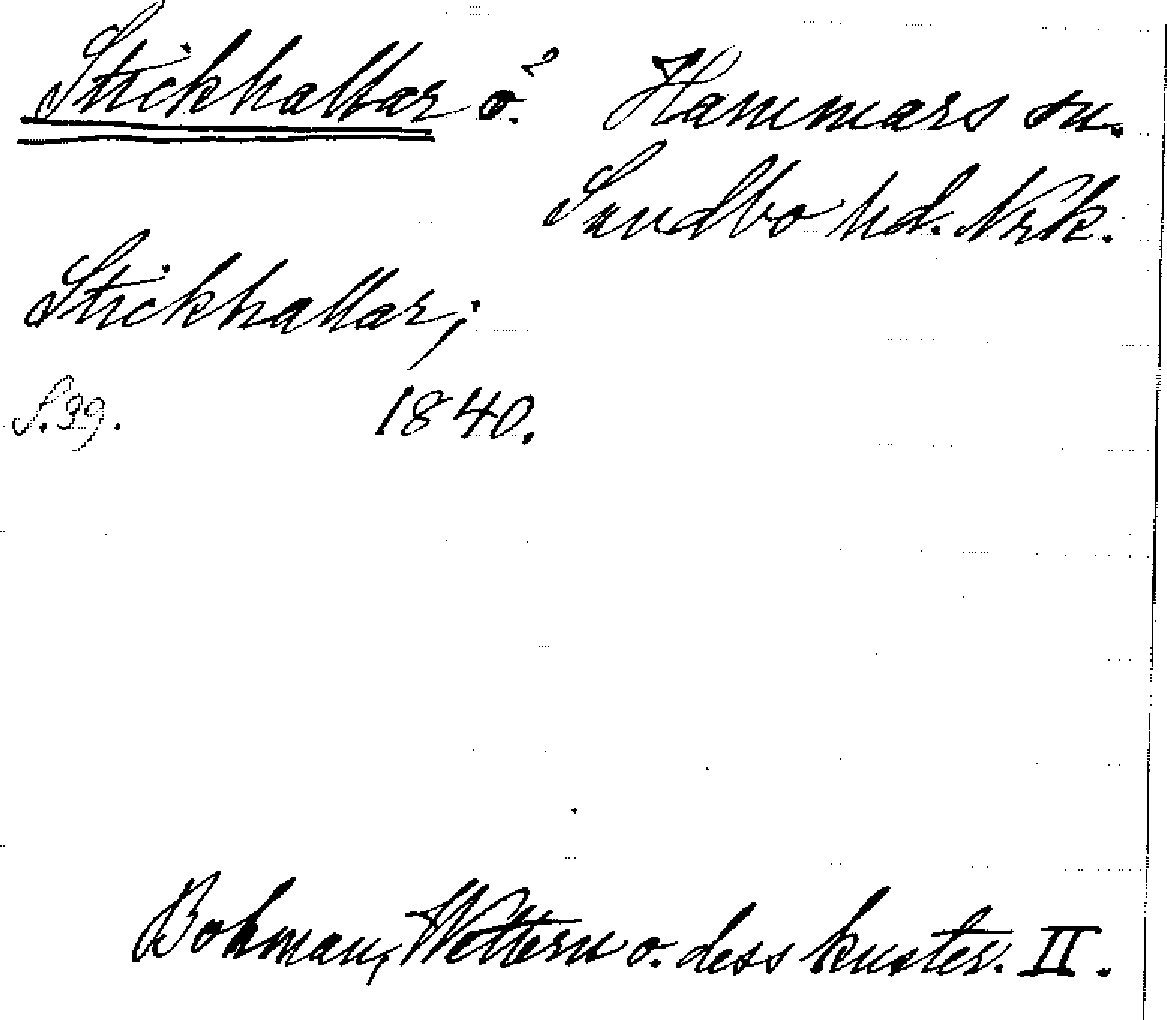 Stickhallar o.?
Hammars sn.
Sundbo hd. Nrk.
Stickhallar;
S. 39. 1840.
Bohman, Wettern o. dess kuster. II.